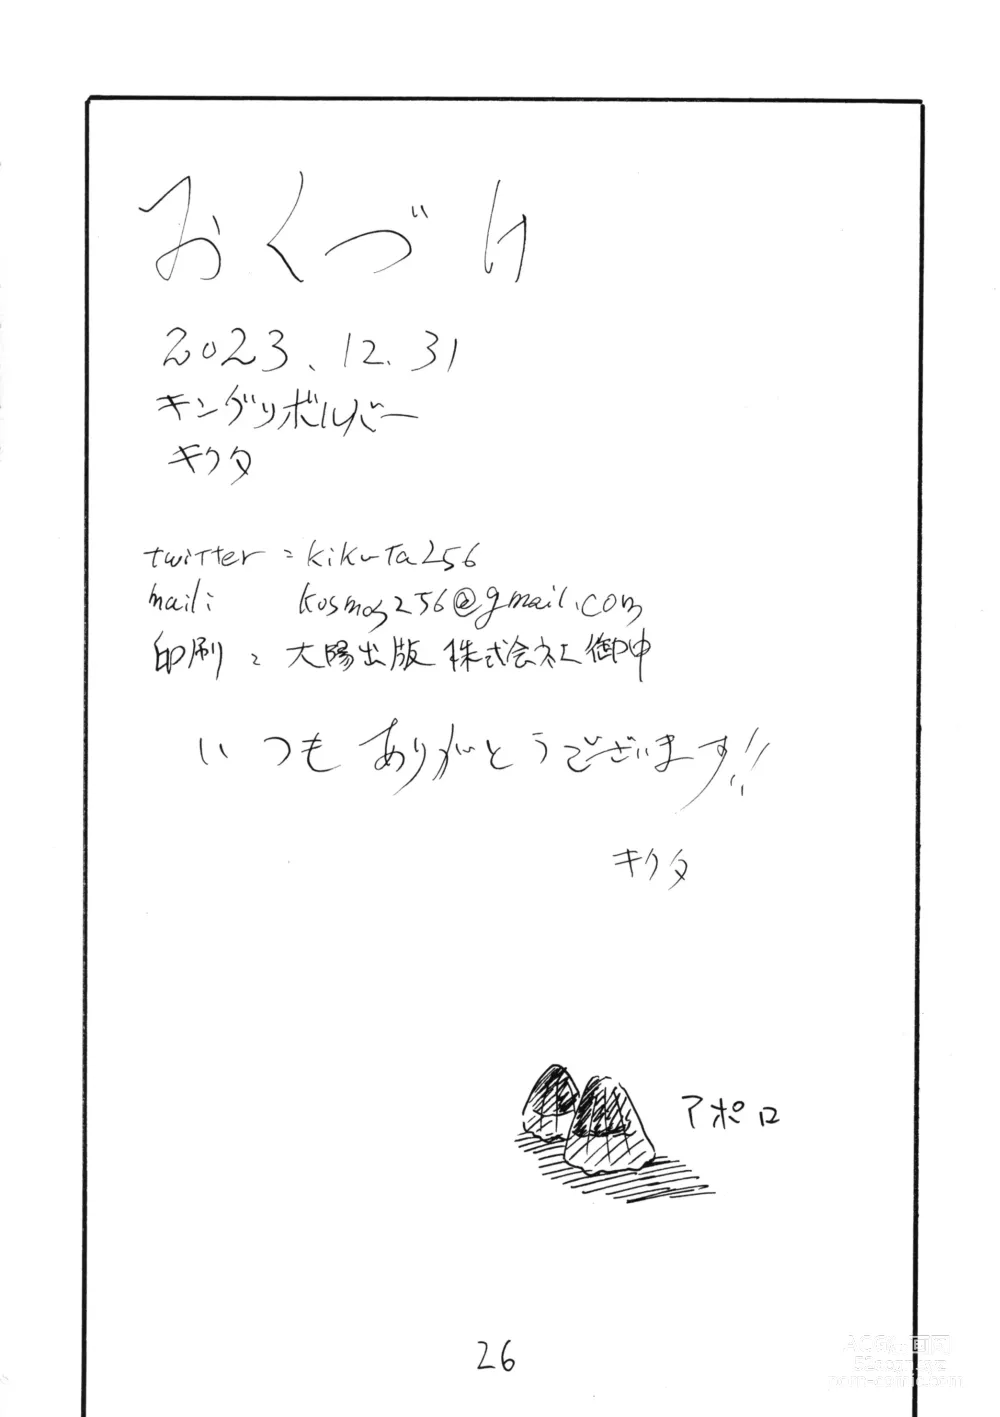 おくづけ
2023.12.31
キングリボルバー
キクタ
twitter:kikuta256
mail: kosmos256@gmail.com
印刷:大陽出版株式会社御中
いつもありがとうございます!!
キクタ
アポロ
26